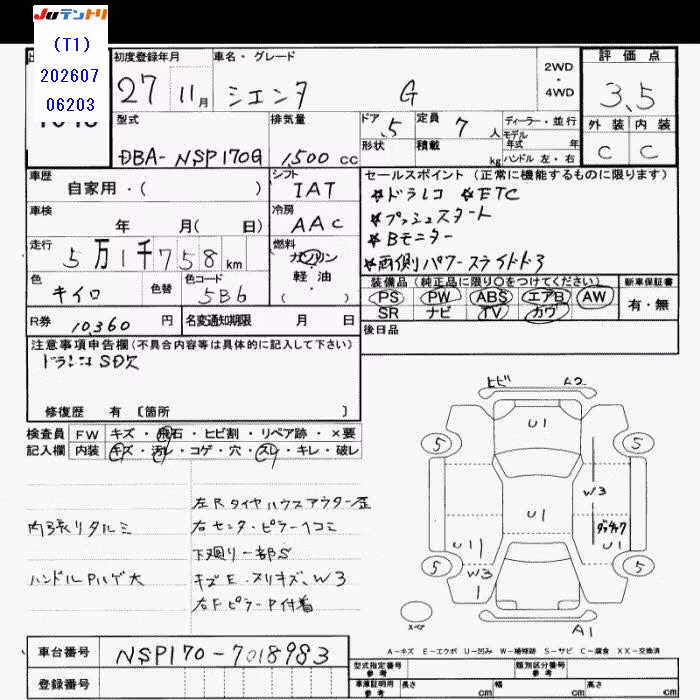 JUテントリ
(T1)
202607
06203
初度登録年月 車名・グレード 2WD・4WD 評価点
27 11月 シエンタ G 3.5
型式 排気量 ドア 定員 ディーラー・並行 外装 内装
DBA-NSP170G 1,500cc 5 7人 モデル年式 年 C C
形状 積載 kg ハンドル 左・右
車歴 シフト セールスポイント(正常に機能するものに限ります)
自家用・( ) IAT ☆ドラレコ ☆ETC
車検 冷房 ☆プッシュスタート
年 月( 日) AAC ☆Bモニター
走行 燃料 ☆両側パワースライドドア
5万1千758km ガソリン
軽・油
( )
色 色替 色コード 装備品(純正品に限り○をつけてください) 新車保証書
キイロ 5B6 PS PW ABS エアB AW 有・無
SR ナビ TV カワ
R券 10,360円 名変通知期限 月 日 後日品
注意事項申告欄(不具合内容等は具体的に記入して下さい)
ドラレコSD欠
修復歴 有〔箇所 〕
検査員 FW キズ・飛石・ヒビ割・リペア跡・×要
記入欄 内装 キズ・汚レ・コゲ・穴・スレ・キレ・破レ
左Rタイヤハウスアウター歪
内張りタルミ 右センターピラーヘコミ
下廻り一部S
ハンドルハゲ大 キズE、スリキズ、W3
右FピラーP付着
ヒビ A2
U1
5 5
W3
U1
U1 U1
5 5
W3
1
スペア A1
A-キズ E-エクボ U-凹み W-補修跡 S-サビ C-腐食 XX-交換済
車台番号 NSP170-7018983
登録番号
型式指定番号 参考 類別区分番号 参考
車庫証明用 参考 長さ cm 幅 cm 高さ cm